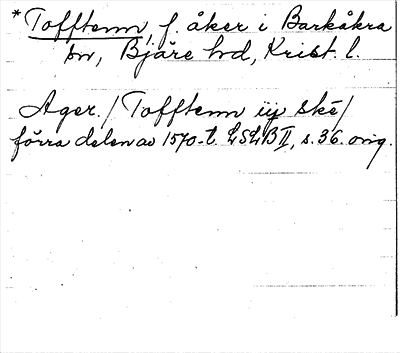 *Tofftenn, f. åker i Barkåkra
sn, Bjäre hd, Krist. l.
Ager. / Tofftenn iij skè/
förra delen av 1570-t. LSLB II, s. 36. orig.